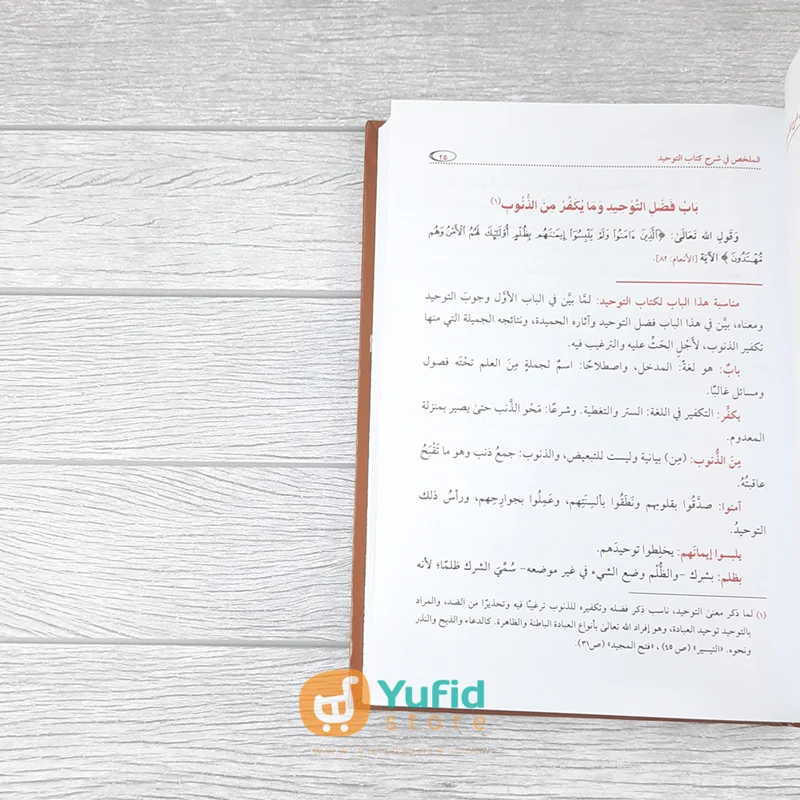 الملخص في شرح كتاب التوحيد ٢٥
بَابُ فَضْلِ التَّوْحِيدِ وَمَا يُكَفِّرُ مِنَ الذُّنُوبِ(١)
وَقَولِ الله تَعَالَىٰ: ﴿الَّذِينَ ءَامَنُوا وَلَمْ يَلْبِسُوٓا إِيمَٰنَهُم بِظُلْمٍ أُوْلَٰٓئِكَ لَهُمُ الْأَمْنُ وَهُم
مُّهْتَدُونَ﴾ الآيَةَ [الأنعام: ٨٢].
مناسبة هذا الباب لكتاب التوحيد: لمَّا بيَّن في الباب الأوَّل وجوبَ التوحيد
ومعناه، بيَّن في هذا الباب فضل التوحيد وآثاره الحميدة، ونتائجه الجميلة التي منها
تكفير الذنوب، لأَجْلِ الحَثِّ عليه والترغيب فيه.
بابٌ: هو لغةً: المدخل، واصطلاحًا: اسمٌ لجملةٍ مِنَ العلم تحتَه فصول
ومسائل غالبًا.
يكفِّر: التكفير في اللغة: الستر والتغطية. وشرعًا: مَحْو الذَّنب حتىٰ يصير بمنزلة
المعدوم.
مِنَ الذُّنوب: (مِن) بيانية وليست للتبعيض، والذنوب: جمعُ ذنب وهو ما تَقْبَحُ
عاقبتُهُ.
آمنوا: صدَّقُوا بقلوبهم ونَطَقُوا بألسِنَتِهم، وعَمِلُوا بجوارِحِهم، ورأسُ ذلك
التوحيدُ.
يلبِسوا إيمانَهم: يخلِطوا توحيدَهم.
بِظلم: بشرك -والظُّلْم وضع الشيء في غير موضعه- سُمِّيَ الشرك ظلمًا؛ لأنه
(١) لما ذكر معنىٰ التوحيد، ناسب ذكر فضله وتكفيره للذنوب ترغيبًا فيه وتحذيرًا من الضد، والمراد
بالتوحيد توحيد العبادة، وهو إفراد الله تعالىٰ بأنواع العبادة الباطنة والظاهرة. كالدعاء والذبح والنذر
ونحوه. «التيسير» (ص ٤٥)، «فتح المجيد» (ص٣١).
Yufid
store